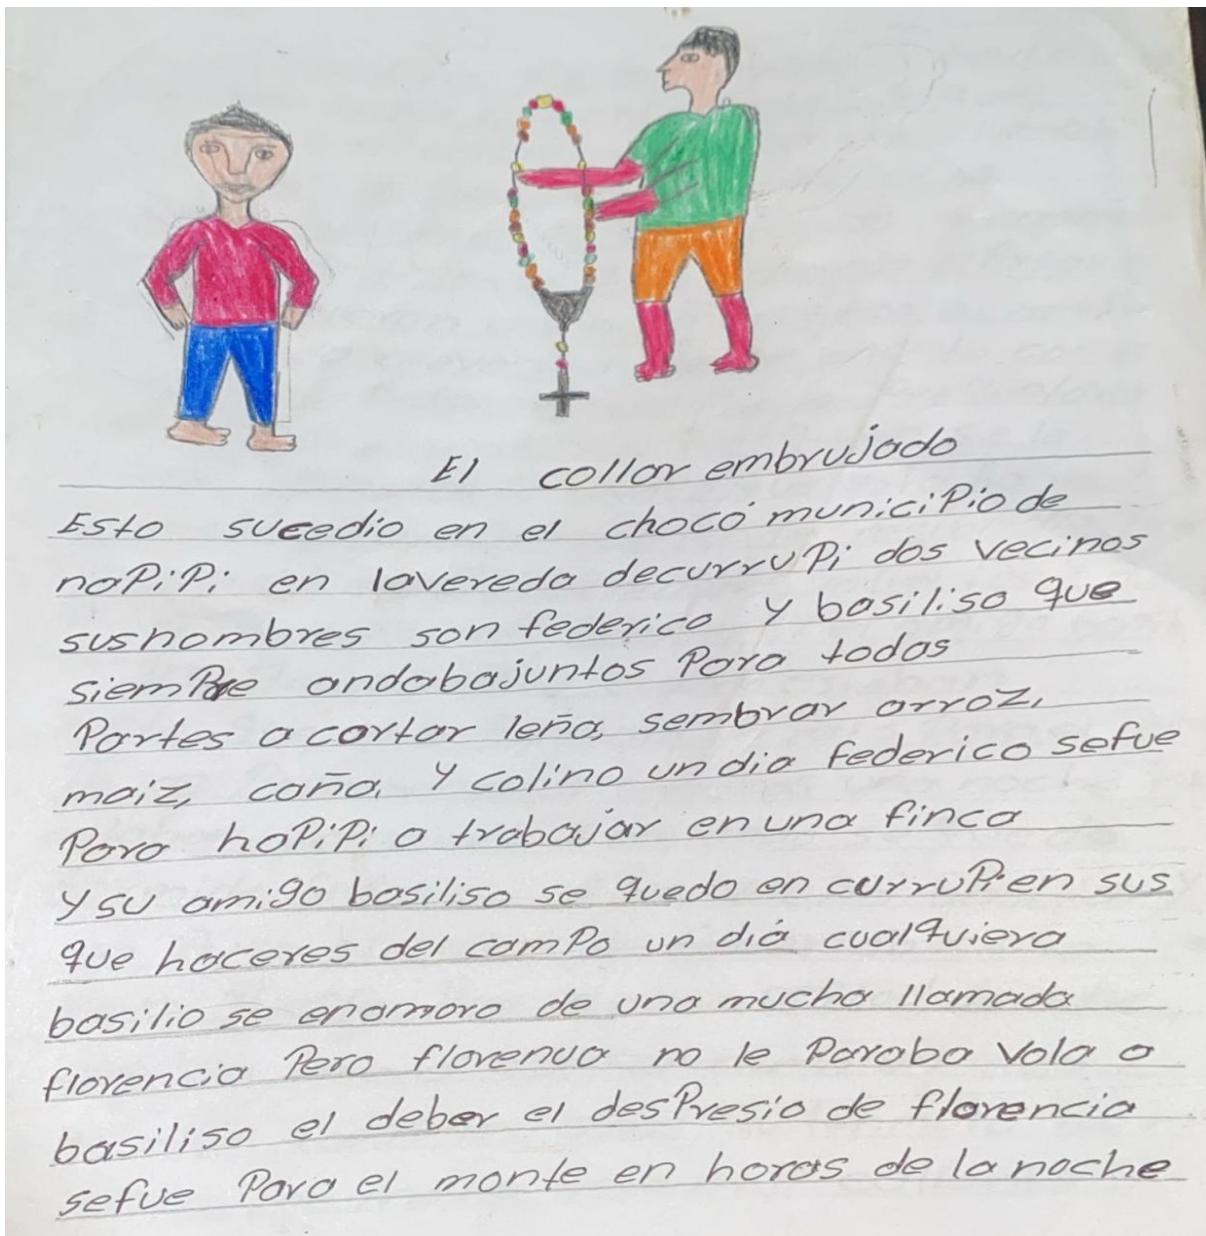 El collar embrujado
Esto sucedio en el chocó municipio de
nopipi en lavereda decurrupi dos vecinos
susnombres son federico y basiliso que
siempre andabajuntos para todas
Partes a cortar leña, sembrar arroz,
maiz, caña, y colino un dia federico sefue
Para hopipi a trabajar en una finca
y su amigo basiliso se quedo en currupi en sus
que haceres del campo un diá cualquiera
basilio se enamoro de una mucha llamada
florencia Pero florenua no le Paraba vola a
basiliso el deber el despresio de florencia
sefue Para el monte en horas de la noche